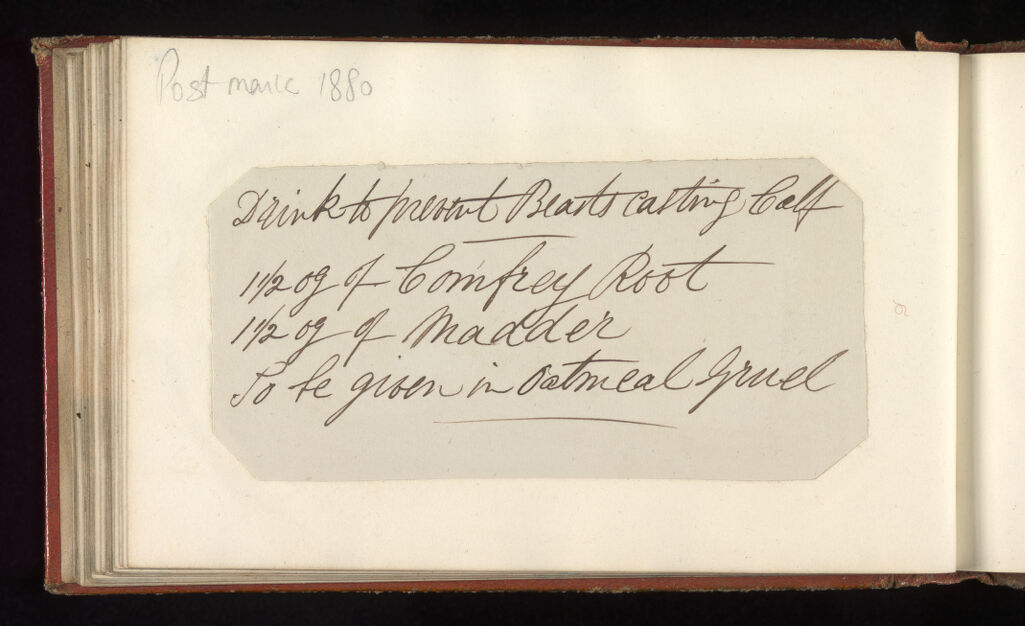 Post mark 1880
Drink to prevent Beasts casting Calf
1 1/2 oz of Comfrey Root
1 1/2 oz of Madder
To be given in Oatmeal Gruel